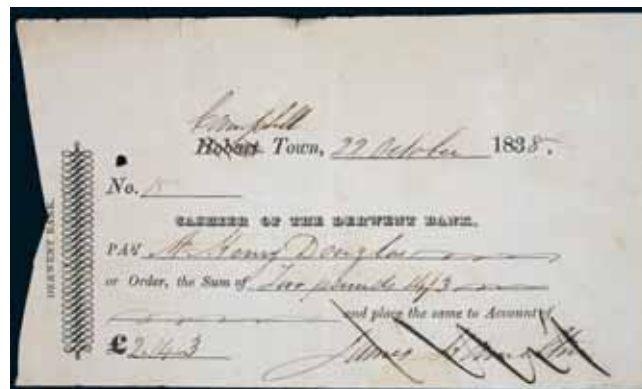 Campbell
Hobart Town, 29 October 1838.
No.
CASHIER OF THE DERWENT BANK.
PAY Mr. Henry Douglas
or Order, the Sum of Two pounds 4/3
and place the same to Account of
£ 2.4.3
James
DERWENT BANK.